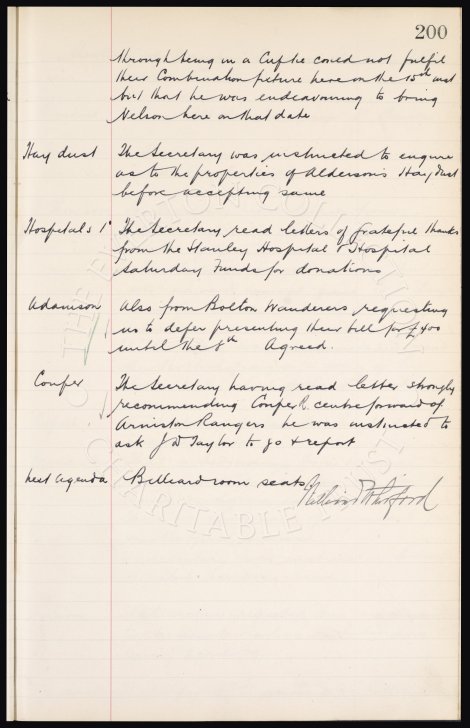 200
through being in a Cup tie could not fulfil
their Combination fixture here on the 15th inst
but that he was endeavouring to bring
Nelson here on that date
Hay dust The Secretary was instructed to enquire
as to the properties of Alderson's Hay dust
before accepting same
Hospitals The Secretary read letters of grateful thanks
from the Stanley Hospital & Hospital
Saturday Funds for donations
Adamson Also from Bolton Wanderers requesting
us to defer presenting their bill for £400
until the 8th Agreed.
Couper The Secretary having read letter strongly
recommending Couper R. centre forward of
Arniston Rangers he was instructed to
ask J D Taylor to go & report
next agenda Billiard room seats
William Whitford
THE EVERTON COLLECTION
CHARITABLE TRUST